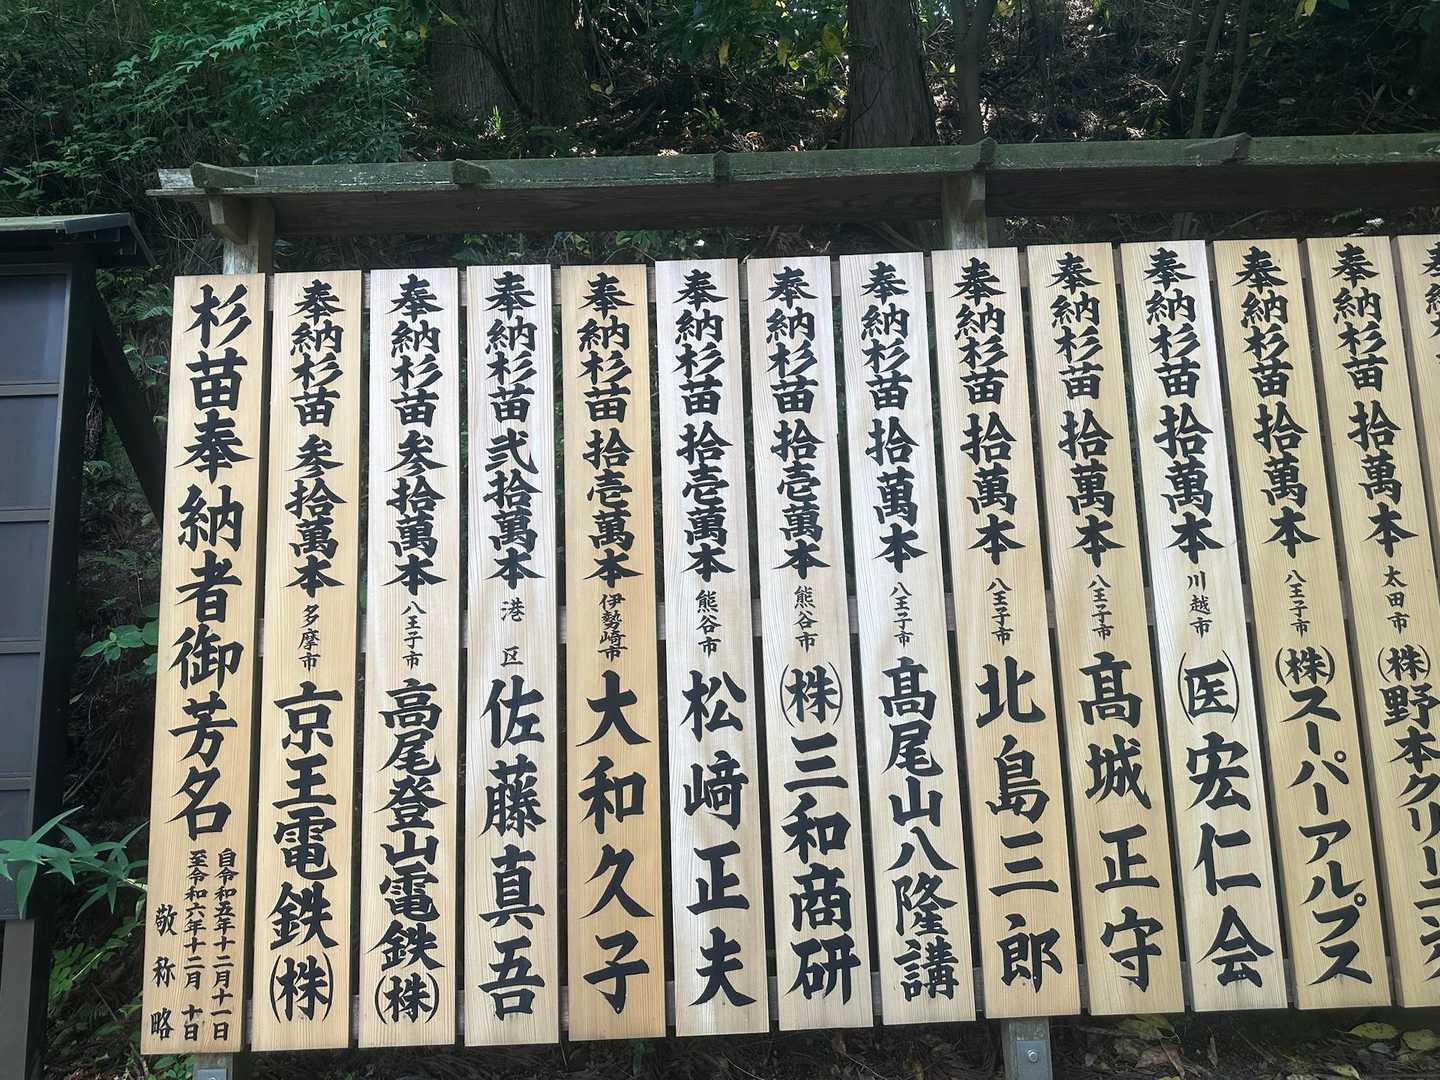 杉苗奉納者御芳名
自令和五年十二月十一日
至令和六年十二月 十日
敬称略
奉納杉苗 参拾萬本 多摩市 京王電鉄(株)
奉納杉苗 参拾萬本 八王子市 高尾登山電鉄(株)
奉納杉苗 弐拾萬本 港区 佐藤真吾
奉納杉苗 拾壱萬本 伊勢崎市 大和久子
奉納杉苗 拾壱萬本 熊谷市 松﨑正夫
奉納杉苗 拾壱萬本 熊谷市 (株)三和商研
奉納杉苗 拾萬本 八王子市 髙尾山八隆講
奉納杉苗 拾萬本 八王子市 北島三郎
奉納杉苗 拾萬本 八王子市 髙城正守
奉納杉苗 拾萬本 川越市 (医)宏仁会
奉納杉苗 拾萬本 八王子市 (株)スーパーアルプス
奉納杉苗 拾萬本 太田市 (株)野本クリーニ